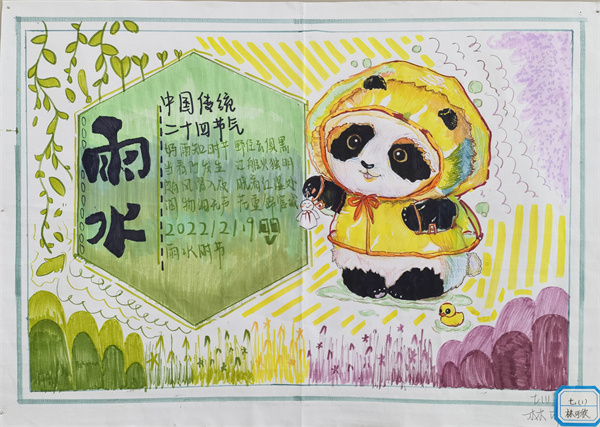 雨水
中国传统
二十四节气
好雨知时节 野径云俱黑
当春乃发生 江船火独明
随风潜入夜 晓看红湿处
润物细无声 花重锦官城
2022/2/19
雨水时节
七(1)
林
七(1)